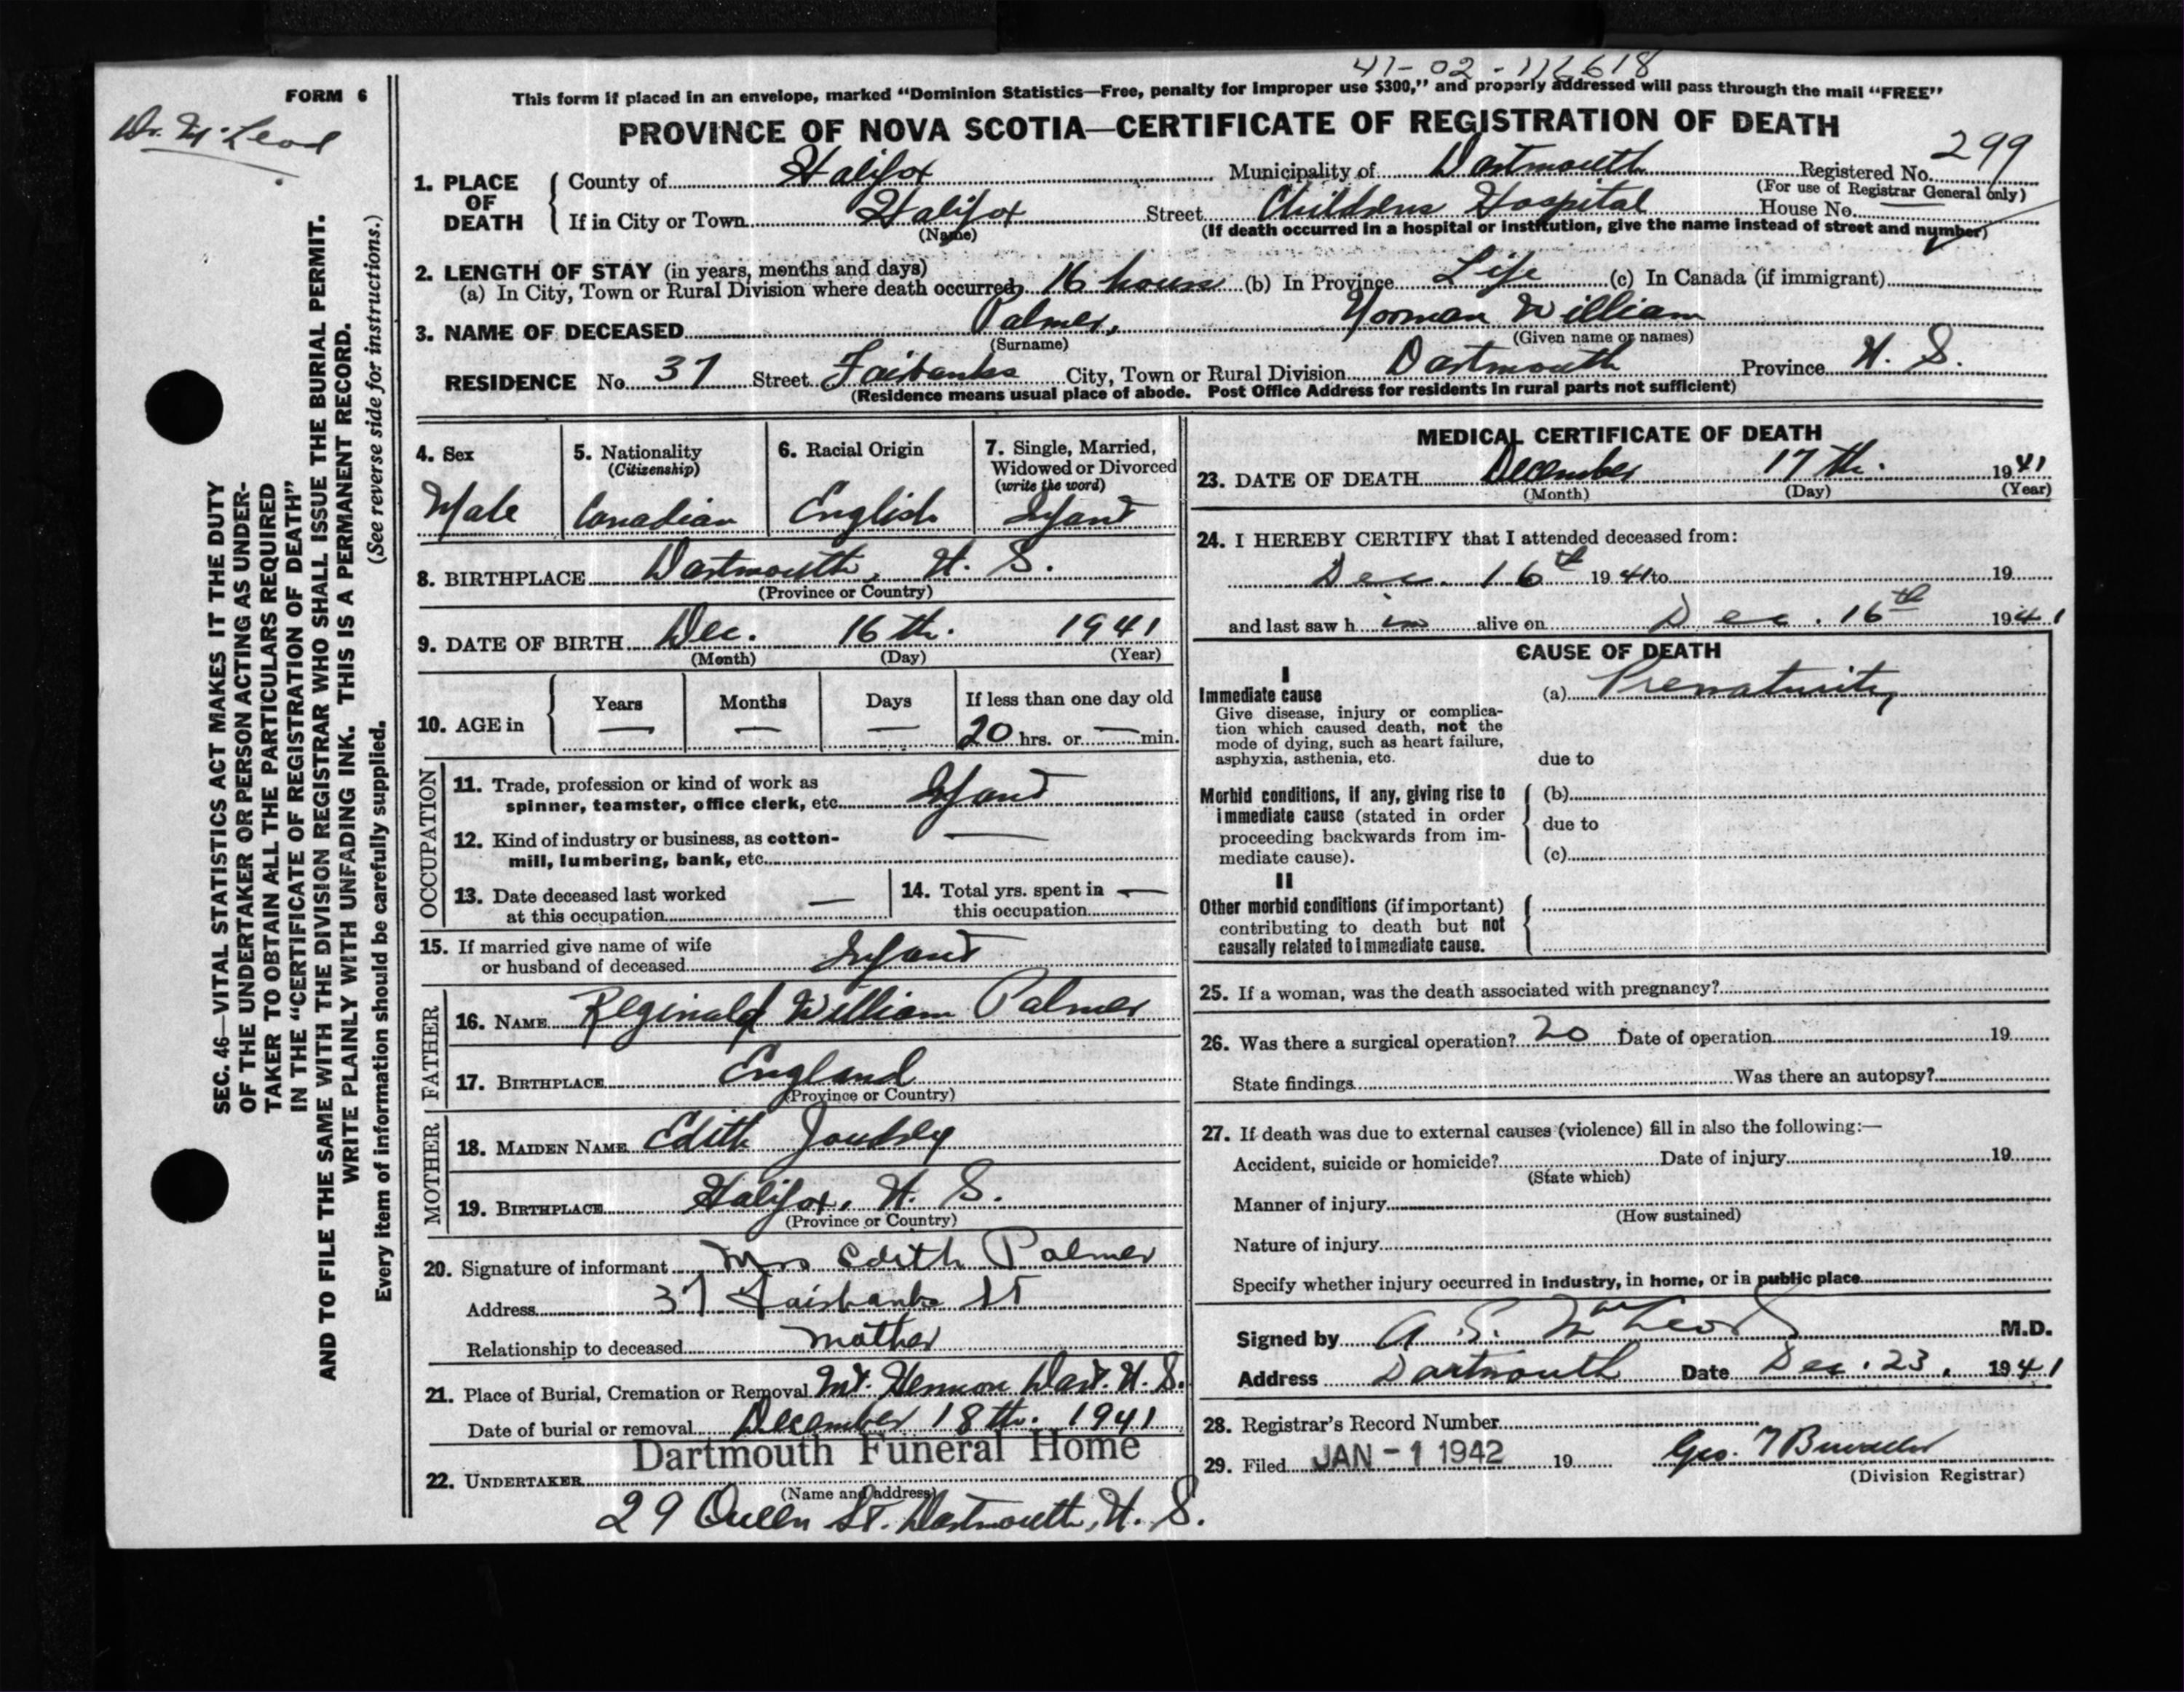 41-02-116618
FORM 6
This form if placed in an envelope, marked "Dominion Statistics—Free, penalty for improper use $300," and properly addressed will pass through the mail "FREE"
Dr. McLeod
PROVINCE OF NOVA SCOTIA—CERTIFICATE OF REGISTRATION OF DEATH
1. PLACE OF DEATH
County of Halifax Municipality of Dartmouth Registered No. 299
(For use of Registrar General only)
If in City or Town Halifax Street Childrens Hospital House No.
(Name) (If death occurred in a hospital or institution, give the name instead of street and number)
2. LENGTH OF STAY (in years, months and days)
(a) In City, Town or Rural Division where death occurred, 16 hours (b) In Province Life (c) In Canada (if immigrant)
3. NAME OF DECEASED Palmer, Norman William
(Surname) (Given name or names)
RESIDENCE No. 37 Street Fairbanks City, Town or Rural Division Dartmouth Province N. S.
(Residence means usual place of abode. Post Office Address for residents in rural parts not sufficient)
4. Sex
Male
5. Nationality
(Citizenship)
Canadian
6. Racial Origin
English
7. Single, Married,
Widowed or Divorced
(write the word)
Infant
8. BIRTHPLACE Dartmouth, N. S.
(Province or Country)
9. DATE OF BIRTH Dec. 16th. 1941
(Month) (Day) (Year)
10. AGE in
Years Months Days If less than one day old
— — — 20 hrs. or — min.
OCCUPATION
11. Trade, profession or kind of work as
spinner, teamster, office clerk, etc. Infant
12. Kind of industry or business, as cotton-
mill, lumbering, bank, etc. —
13. Date deceased last worked
at this occupation —
14. Total yrs. spent in —
this occupation
15. If married give name of wife
or husband of deceased Infant
FATHER
16. NAME Reginald William Palmer
17. BIRTHPLACE England
(Province or Country)
MOTHER
18. MAIDEN NAME Edith Joudrey
19. BIRTHPLACE Halifax, N. S.
(Province or Country)
20. Signature of informant Mrs Edith Palmer
Address 37 Fairbanks St
Relationship to deceased mother
21. Place of Burial, Cremation or Removal Mt. Hermon Dart. N. S.
Date of burial or removal December 18th. 1941
Dartmouth Funeral Home
22. UNDERTAKER
(Name and address)
29 Queen St. Dartmouth, N. S.
MEDICAL CERTIFICATE OF DEATH
23. DATE OF DEATH December 17th. 1941
(Month) (Day) (Year)
24. I HEREBY CERTIFY that I attended deceased from:
Dec. 16th 1941 to 19
and last saw h im alive on Dec. 16th 1941
CAUSE OF DEATH
I
Immediate cause
Give disease, injury or complica-
tion which caused death, not the
mode of dying, such as heart failure,
asphyxia, asthenia, etc.
(a) Prematurity
due to
Morbid conditions, if any, giving rise to
immediate cause (stated in order
proceeding backwards from im-
mediate cause).
(b)
due to
(c)
II
Other morbid conditions (if important)
contributing to death but not
causally related to immediate cause.
25. If a woman, was the death associated with pregnancy?
26. Was there a surgical operation? no Date of operation 19
State findings Was there an autopsy?
27. If death was due to external causes (violence) fill in also the following:—
Accident, suicide or homicide? Date of injury 19
(State which)
Manner of injury
(How sustained)
Nature of injury
Specify whether injury occurred in industry, in home, or in public place
Signed by A. S. MacLeod M.D.
Address Dartmouth Date Dec. 23, 1941
28. Registrar's Record Number
29. Filed JAN - 1 1942 19 Geo.
(Division Registrar)
SEC. 46—VITAL STATISTICS ACT MAKES IT THE DUTY
OF THE UNDERTAKER OR PERSON ACTING AS UNDER-
TAKER TO OBTAIN ALL THE PARTICULARS REQUIRED
IN THE "CERTIFICATE OF REGISTRATION OF DEATH"
AND TO FILE THE SAME WITH THE DIVISION REGISTRAR WHO SHALL ISSUE THE BURIAL PERMIT.
WRITE PLAINLY WITH UNFADING INK. THIS IS A PERMANENT RECORD.
Every item of information should be carefully supplied. (See reverse side for instructions.)